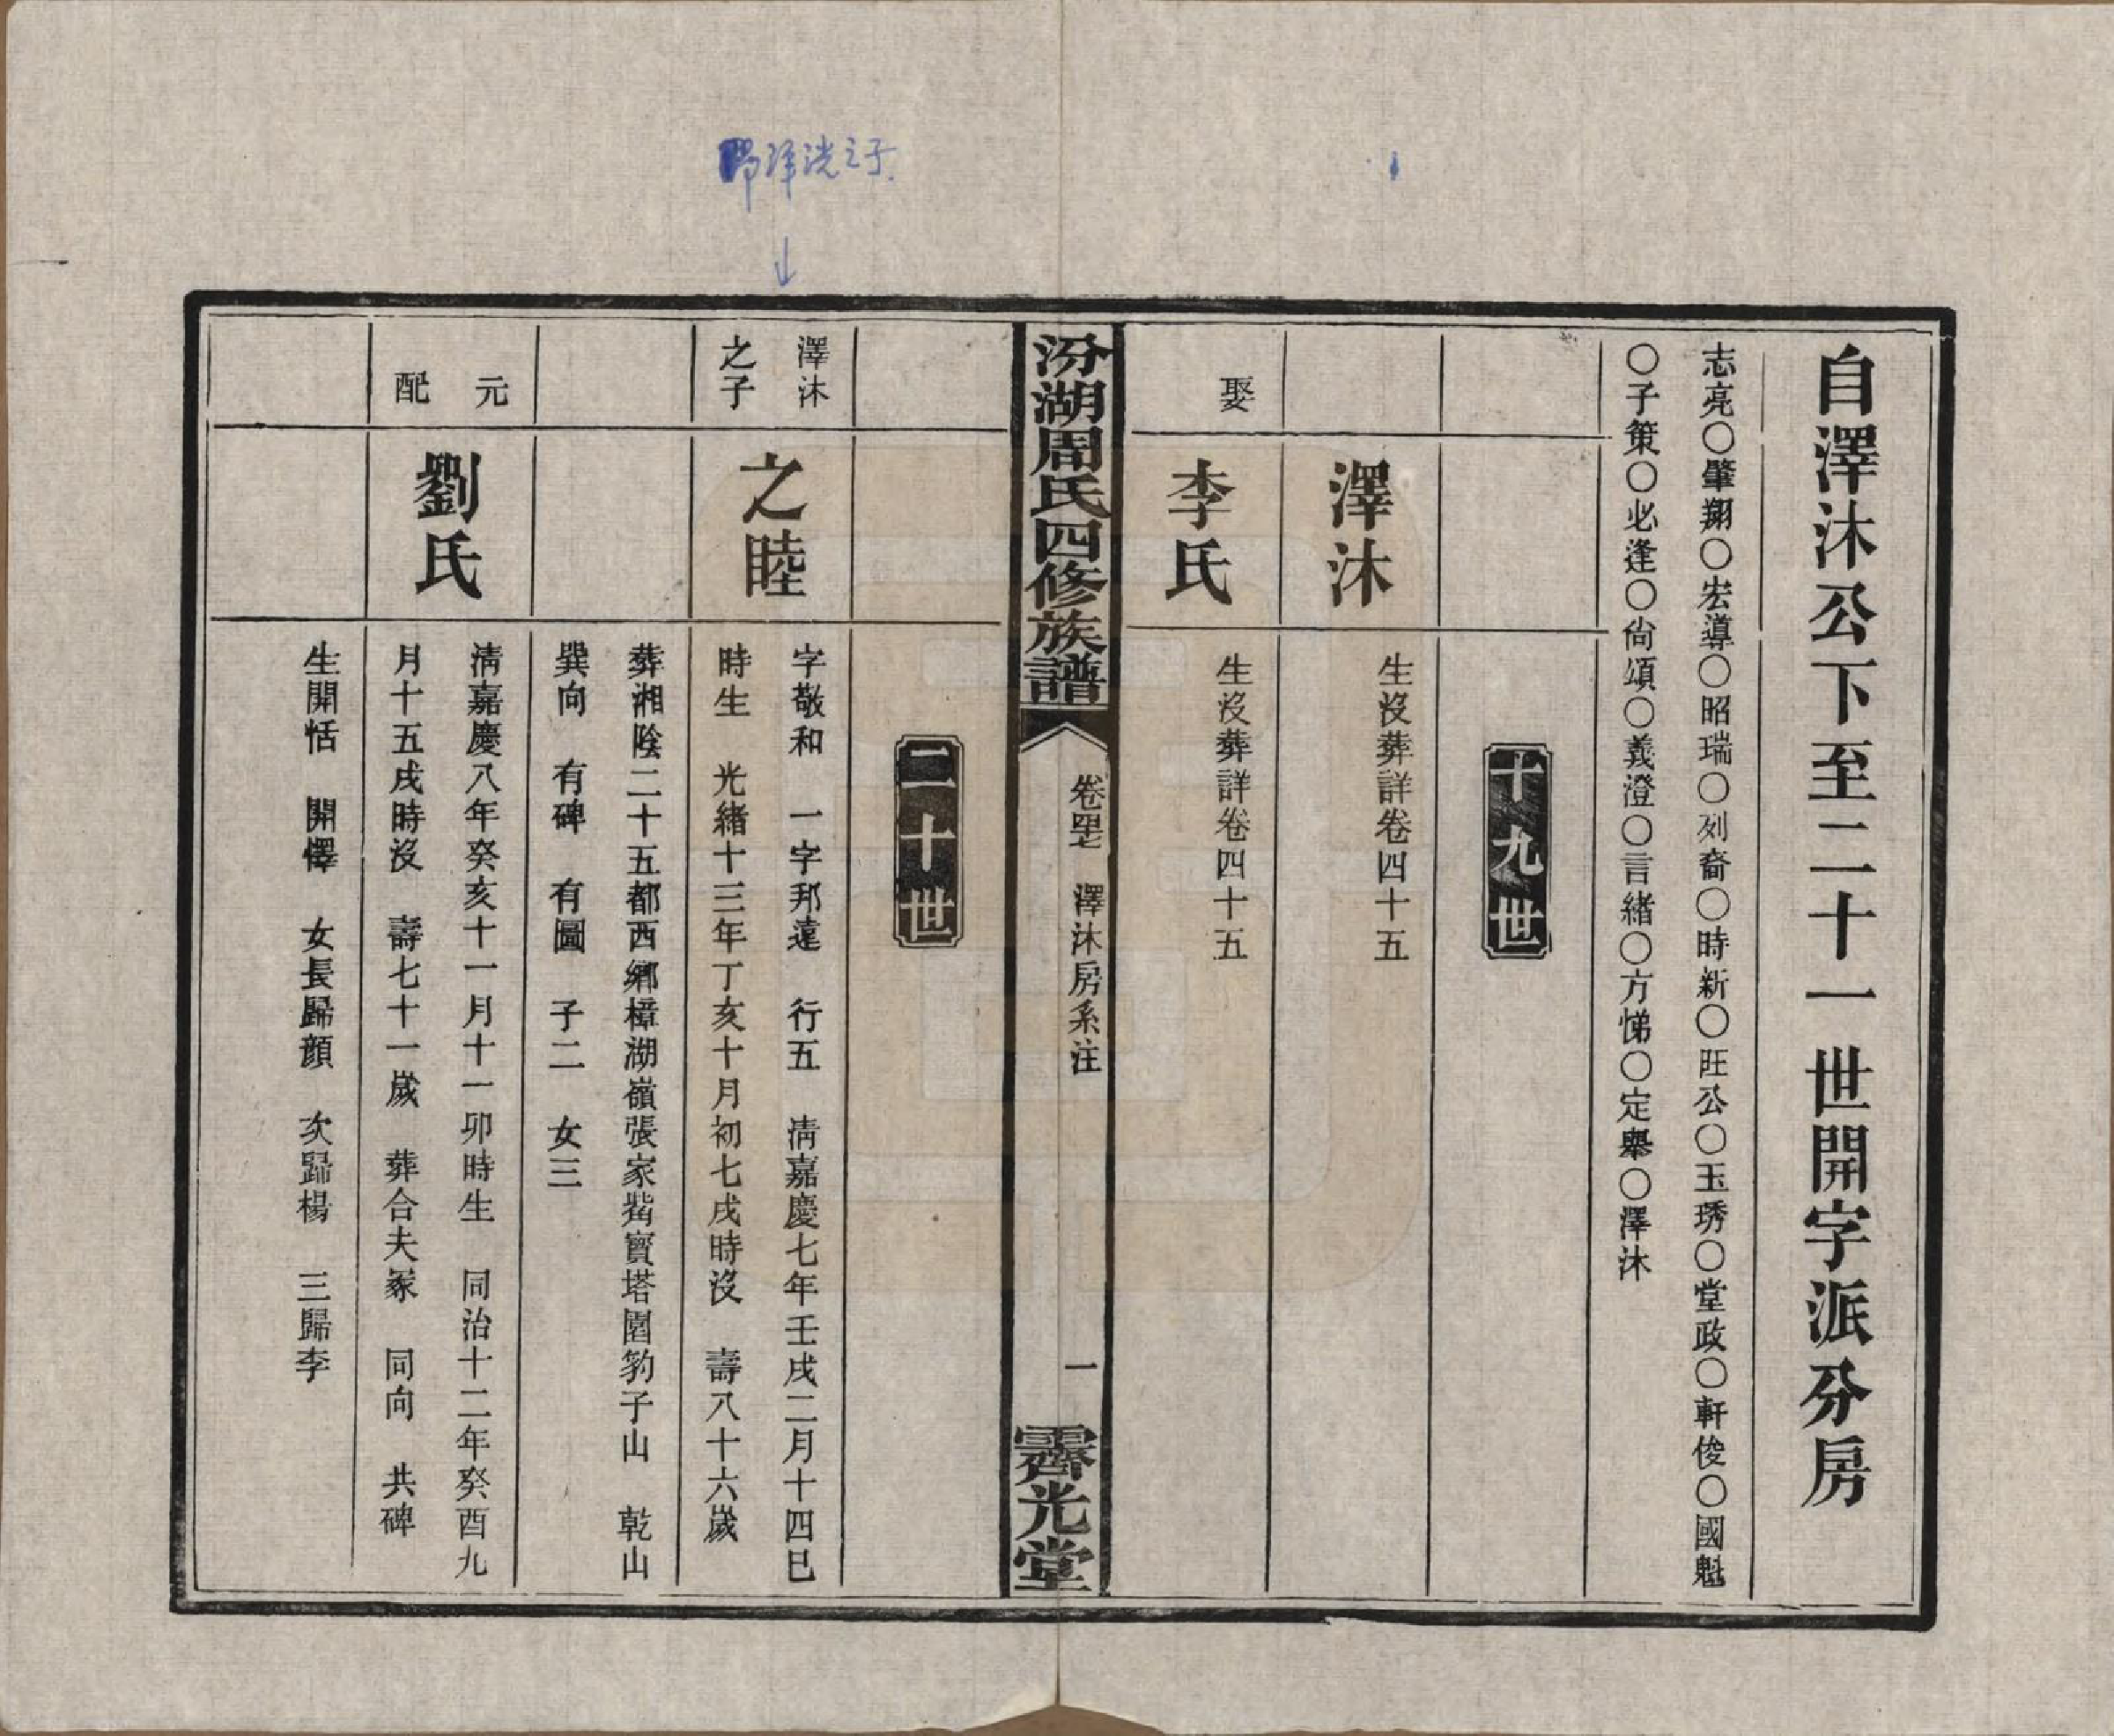 自澤沐公下至二十一世開字派分房
志亮〇肇翔〇宏導〇昭瑞〇列裔〇時新〇旺公〇玉琇〇堂政〇軒俊〇國魁
〇子策〇必逢〇尙頌〇義澄〇言緒〇方悌〇定舉〇澤沐
十九世
澤沐
生沒葬詳卷四十五
娶
李氏
生沒葬詳卷四十五
汾湖周氏四修族譜
澤沐房系注
一
霽光堂
二十世
澤沐
之子
之睦
字敬和 一字邦遠 行五 淸嘉慶七年壬戌二月十四巳
時生 光緖十三年丁亥十月初七戌時沒 壽八十六歲
葬湘陰二十五都西鄉樟湖嶺張家嘴寶塔園豹子山 乾山
巽向 有碑 有圖 子二 女三
元
配
劉氏
淸嘉慶八年癸亥十一月十一卯時生 同治十二年癸酉九
月十五戌時沒 壽七十一歲 葬合夫冢 同向 共碑
生開恬 開懌 女長歸顏 次歸楊 三歸李